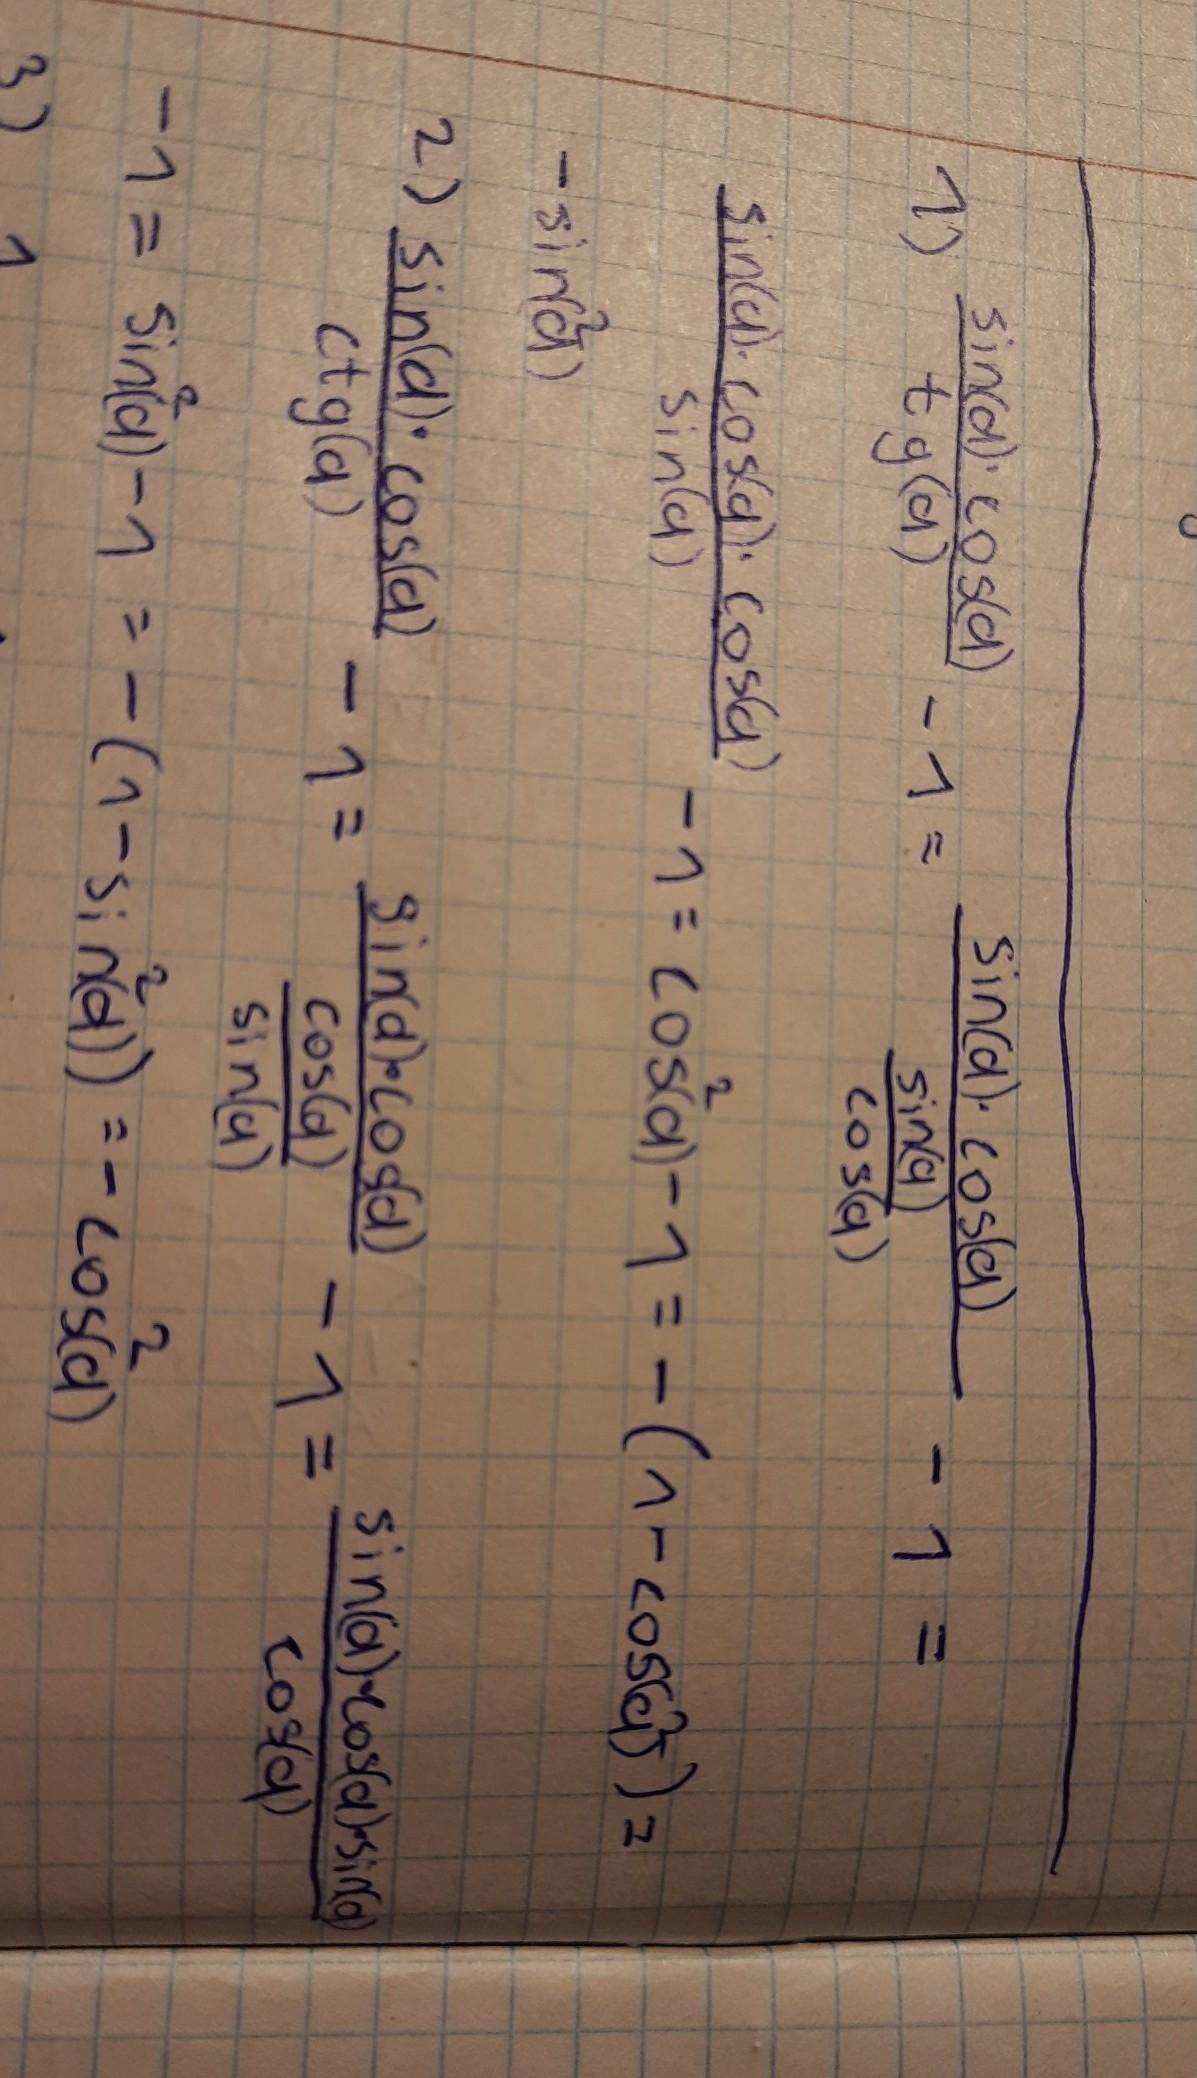 1) sin(α)·cos(α)/tg(α) - 1 = sin(α)·cos(α)/(sin(α)/cos(α)) - 1 =
sin(α)·cos(α)·cos(α)/sin(α) - 1 = cos²(α) - 1 = -(1 - cos²(α)) =
- sin²(α)
2) sin(α)·cos(α)/ctg(α) - 1 = sin(α)·cos(α)/(cos(α)/sin(α)) - 1 = sin(α)·cos(α)·sin(α)/cos(α)
- 1 = sin²(α) - 1 = -(1 - sin²(α)) = - cos²(α)
3) 1